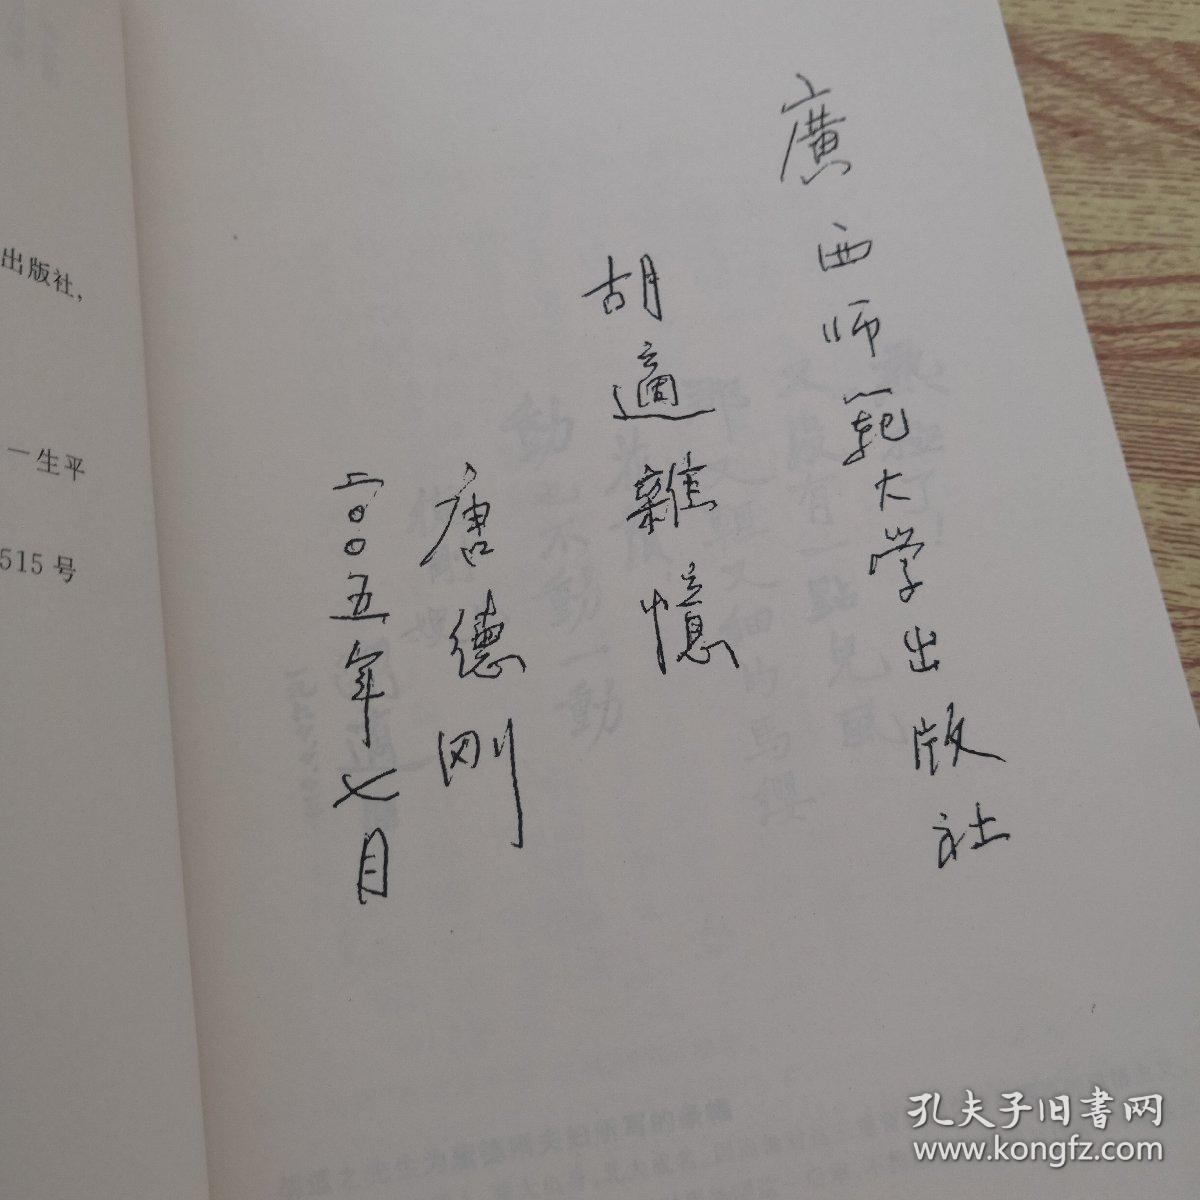 廣西师範大学出版社
胡適雜憶
唐德刚
二〇〇五年七月
出版社,
一生平
515号
孔夫子旧书网
www.kongfz.com